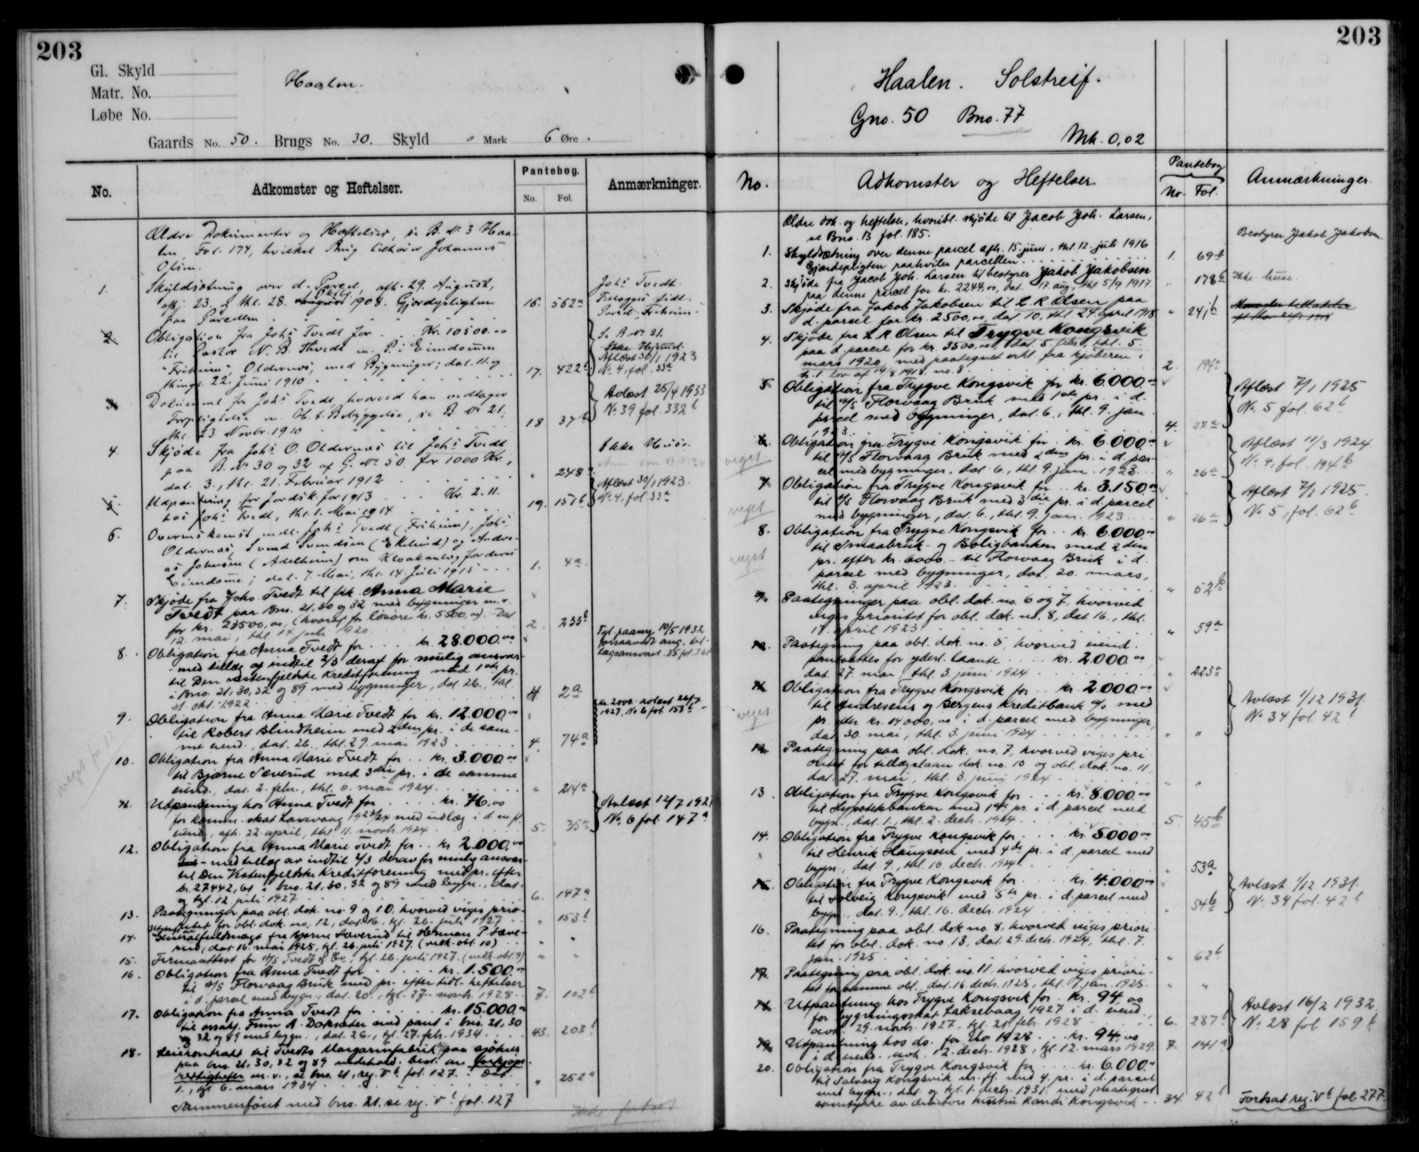 203
Gl. Skyld
Matr. No.
Løbe No.
Haalen.
Gaards No. 50. Brugs No. 30. Skyld " Mark 6 Øre.
No.
Adkomster og Heftelser.
Pantebog.
No. Fol.
Anmærkninger.
Ældre Dokumenter og Heftelser, se B. No 3 Haalen
Fol. 174, hvilket Brug tilhører Johannes
Olsen.
1. Skyldsætning over d. Parcel, afh. 29. August,
1908. Gjerdepligten
paa Parcellen 16. 562a
2. Obligation fra Johs Tvedt for Kr. 10500.00
til Pastor N. B. Thvedt m. P. i Eiendommen
"Friheim", Oldernæs, med Bygninger; dat. 11. og
thingl. 22 Juni 1910 17. 422a
Aflæst 30/1 1923
No. 4, fol. 33a
3. Dokument fra Johs Tvedt, hvorved han vedtager
Forpligtelse m. H. t. Bebyggelse, se B. No 21.
thl. 23 Novbr. 1910 18 37b
Avlæst 25/4 1933
No. 39 fol. 332b
4. Skjøde fra Johs O. Oldernæs til Johs Tvedt
paa B. No 30 og 32 af G. No 50 for 1000 Kr.,
dat. 3., thl. 21. Februar 1912 " 248a
Ikke Huse.
5. Udpantning for Jordsk. for 1913 Kr. 2.11.
hos Johs Tvedt, thl. 1. Mai 1914 19. 157b
Aflæst 30/1 1923.
No. 4, fol. 33a
6. Overenskomst mell. Johs Tvedt (Friheim), Johs
Oldernæs, Svend Svendsen (Eklund) og Andreas
Johnsen (Adelheim) om Kloakanlæg for deres
Eiendomme; dat. 7 Mai, thl. 14 Juli 1915 1. 4a
7. Skjøde fra Johs Tvedt til frk Anna Marie
Tvedt paa Bno. 21, 30 og 32 med bygninger m.v.
for kr. 28500,00, (hvoraf for løsøre kr. 5500,00). Dat
12. mai, thl. 14 juli 1920 2. 233b
8. Obligation fra Anna Tvedt for kr. 28.000.00
med tillæg af indtil 2/3 deraf for mulig ansvar
til Den vestenfjelske Kreditforening med 1ste pr.
i Bno. 21, 30, 32 og 89 med bygninger, dat. 26., thl.
31. okt. 1922 4 2a
kr. 2000 avlæst
1927. No 6 fol. 153a
9. Obligation fra Anna Marie Tvedt for kr. 12.000.00
til Robert Blindheim med 2den pr. i de samme
eiend. dat. 26., thl. 29. mai 1923 4. 74a
10. Obligation fra Anna Marie Tvedt for kr. 3.000.00
til Bjarne Sæverud med 3die pr. i de samme
eiend. dat. 2. febr., thl. 6. mai 1924 " 214a
11. Utpantning hos Anna Tvedt for kr. 76,00
for komm. skat Laxevaag 1923/24 med udlæg i d. m. fl.
eiend., afh. 22 april, thl. 11. novbr. 1924 5. 35a
Avlæst 12/7 1927
No. 6 fol. 147a
12. Obligation fra Anna Marie Tvedt for kr. 2.000.00
med tillæg av indtil 2/3 derav for mulig ansvar
til Den Vestenfjelske Kreditforening med pr. efter
kr. 27442,61 i bno. 21, 30, 32 og 89 med bygn., dat.
og tgl. 12 juli 1927 6. 147a
13. Paategninger paa obl. dok. no. 9 og 10, hvorved viges prioritet
for obl. dok. no. 12, dat. 16., tgl. 26. juli 1927 " 153b
14. Generalfuldmagt fra Bjarne Sæverud til Herman P. Sæverud,
dat. 16. mai 1925, tgl. 26. juli 1927. (vedk. obl. 10) " "
15. Firmaattest for A/S Tvedt & Co., tgl. 26. juli 1927. (vedk. obl. 9) " "
16. Obligation fra Anna Tvedt for kr. 1.500.00
til A/S Florvaag Bruk med pr. efter tidl. heftelser
i d. parcel med bygn., dat. 20., tgl. 27. novb. 1928 7. 102b
17. Obligation fra Anna Tvedt for kr. 15.000.00
til orsakf. Finn A. med pant i bno. 21, 30
og 32 og 89 med bygn., dat. 26., tgl. 27. febr. 1934 43. 203b
18. Leiekontrakt til Tvedts Margarinfabrik A/S paa
paa bno. 21, 30, 32 og 89 indehold. best. om forkjøpsrettigheter
m. v., se bno. 21, reg. Vb fol. 127. Dat.
1., tgl. 6. mars 1934 " 252a
Sammenføiet med bno. 21. se reg. Vb fol. 127
203
Haalen. Solstreif.
Gno. 50 Bno. 77
Mk. 0,02
No.
Adkomster og Heftelser
Pantebog
No. Fol.
Anmærkninger.
Ældre dok. og heftelser, hvoribl. skjøde til Jacob Joh. Larsen,
se Bno. 13 fol. 185.
1. Skyldsætning over denne parcel afh. 15 juni, thl. 12. juli 1916
Gjærdepligten paahviler parcellen 1. 69a
Bestyrer Jakob Jakobsen.
2. Skjøde fra Jacob Joh. Larsen til bestyrer Jakob Jakobsen
paa denne parcel for kr. 2248,00, dat. 17 aug., thl. 5/9 1917. " 178b
Ikke huse.
3. Skjøde fra Jakob Jakobsen til L R Olsen paa
d. parcel for kr. 2500,00, dat. 10. thl. 24 april 1918 " 241b
4. Skjøde fra L. R. Olsen til Trygve Kongsvik
paa d. parcel for kr. 3500,00, dat. 5 febr., thl. 5.
mars 1920, med paategnet erkl. fra kjøberen i
h. t. lov af 14/8 1918 no. 8 2. 194a
5. Obligation fra Trygve Kongsvik for kr. 6.000.00
til A/S Florvaag Bruk med 1ste pr. i d.
parcel med bygninger, dat. 6., thl. 9. jan.
1923 4. 27a
Aflæst 7/1 1925
No. 5 fol. 62b
6. Obligation fra Trygve Kongsvik for kr. 6000.00
til A/S Florvaag Bruk med 2den pr. i d. parcel
med bygninger, dat. 6., thl. 9. jan. 1923 " 26a
veget
Aflæst 11/3 1924
No. 4, fol. 194b
7. Obligation fra Trygve Kongsvik for kr. 3.150.00
til A/S Florvaag Bruk med 3die pr. i d. parcel
med bygninger, dat. 6., thl. 9. jan. 1923 " 26a
veget
Aflæst 7/1 1925.
No. 5, fol. 62b
8. Obligation fra Trygve Kongsvik for kr. 6000.00
til Smaabruk- og Boligbanken med 2den
pr. efter kr. 6000 til Florvaag Bruk i d.
parcel med bygninger, dat. 20. mars,
thl. 3. april 1923 " 52b
veget
9. Paategninger paa obl. dok. no. 6 og 7, hvorved
viges prioritet for obl. dok. no. 8, dat. 16., thl.
17. april 1923 " 59a
10. Paategning paa obl. dok. no. 5, hvorved eiend.
pantsættes for yderl. laante kr. 2.000.00
dat. 27. mai, thl. 3. juni 1924 " 223a
11. Obligation fra Trygve Kongsvik for kr. 2000.00
til Andresens og Bergens Kreditbank A/S med
pr. efter kr. 14000,00 i d. parcel med bygninger,
dat. 30. mai, thl. 3. juni 1924 " "
veget
Avlæst 1/12 1931
No. 34 fol 42b
12. Paategning paa obl. dok. no. 7, hvorved viges prioritet
for tillægslaan dok. no. 10 og obl. dok. no. 11,
dat. 27. mai, thl. 3. juni 1924 " "
13. Obligation fra Trygve Kongsvik for kr. 8.000.00
til Hypotekbanken med 1ste pr. i d. parcel med
bygn., dat. 1., thl. 2. decb. 1924 5. 45b
14. Obligation fra Trygve Kongsvik for kr. 5000.00
til Henrik Haugsøen med 4de pr. i d. parcel med
bygn., dat. 9., thl. 16. decb. 1924 " 53a
15. Obligation fra Trygve Kongsvik for kr. 4.000.00
til Solveig Kongsvik med 5te pr. i d. parcel med
bygn., dat. 9., thl. 16. decb. 1924 " 54b
Avlæst 1/12 1931.
No. 34 fol. 42b
16. Paategning paa obl. dok. no. 8, hvorved viges prioritet
for obl. dok. no. 13, dat. 29. decb. 1924, thl. 7.
jan. 1925 " 62b
17. Paategning paa obl. dok. no. 11, hvorved viges prioritet
for samme obl., dat. 16. decb. 1925, thl. 7. jan. 1925 " "
18. Utpantning hos Trygve Kongsvik for kr. 94,00
for bygningsskat Laksevaag 1927 i d. eiend.,
avh. 29. novbr. 1927, tgl. 21. febr. 1928 6. 287b
Avlæst 16/2 1932
No. 28 fol 159b
19. Utpantning hos do. for do 1928 kr. 94,00
i d. eiend., avh. 12. decb. 1928, tgl. 12. mars 1929. 7. 141a
20. Obligation fra Trygve Kongsvik for kr. 6.000.00
til Solveig Kongsvik m. fl. med 4. pr. i d. parcel
med bygn., dat. og tgl. 1. decb. 1931, med paategnet
samtykke av debitors hustru Randi Kongsvik 34 42b
Fortsat reg. Vb fol 277.